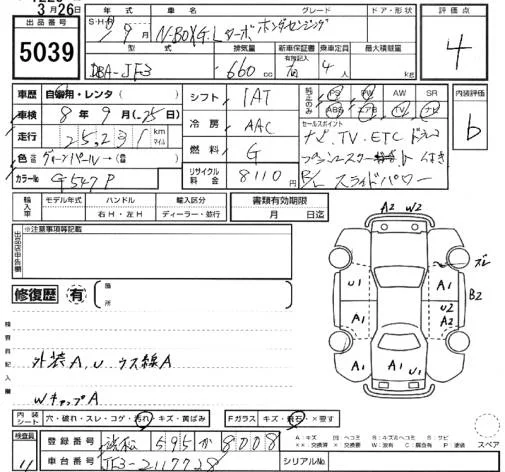 3月26日
出品番号 5039
S・H 年 車名 グレード ドア・形状 評価点
9月 N-BOX G・L ターボ ホンダセンシング 4
型式 排気量 新車保証書 乗車定員 最大積載量
DBA-JF3 660cc 有 4人 kg
車歴 自家用・レンタ( )
車検 8年9月(25日)
走行 25,231km マイル
色 グリーンパール→(
カラーNo G547P
シフト IAT
冷房 AAC
燃料 G
リサイクル料金 8110円
純正のみ PS PW AW SR
ABS エアB TV ナビ
セールスポイント
ナビ、TV、ETC ドラレコ
付き
B/L スライドパワー
内装評価 b
輸入車 モデル年式 ハンドル 輸入区分
年 右H・左H ディーラー・並行
書類有効期限
月 日迄
出品店申告欄 ※注意事項等記載
修復歴 有 箇所
検査員記入欄
外装A,U ウス線A
WキャップA
A2 W2
ズレ
U1 A1 B2
A1 U2 A2
A1 U1 A1
内装シート 穴・破れ・スレ・コゲ・汚れ・キズ・黄ばみ
Fガラス キズ・飛石・×要す
スペア
検査員 11
登録番号 浜松 595 か 8008
車台番号 JF3-2117728
シリアルNo.
A:キズ U:ヘコミ B:キズ&ヘコミ S:サビ
××:交換済 W:波有 C:腐食有 P:塗装